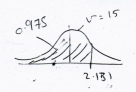 0.975
v = 15
2.131